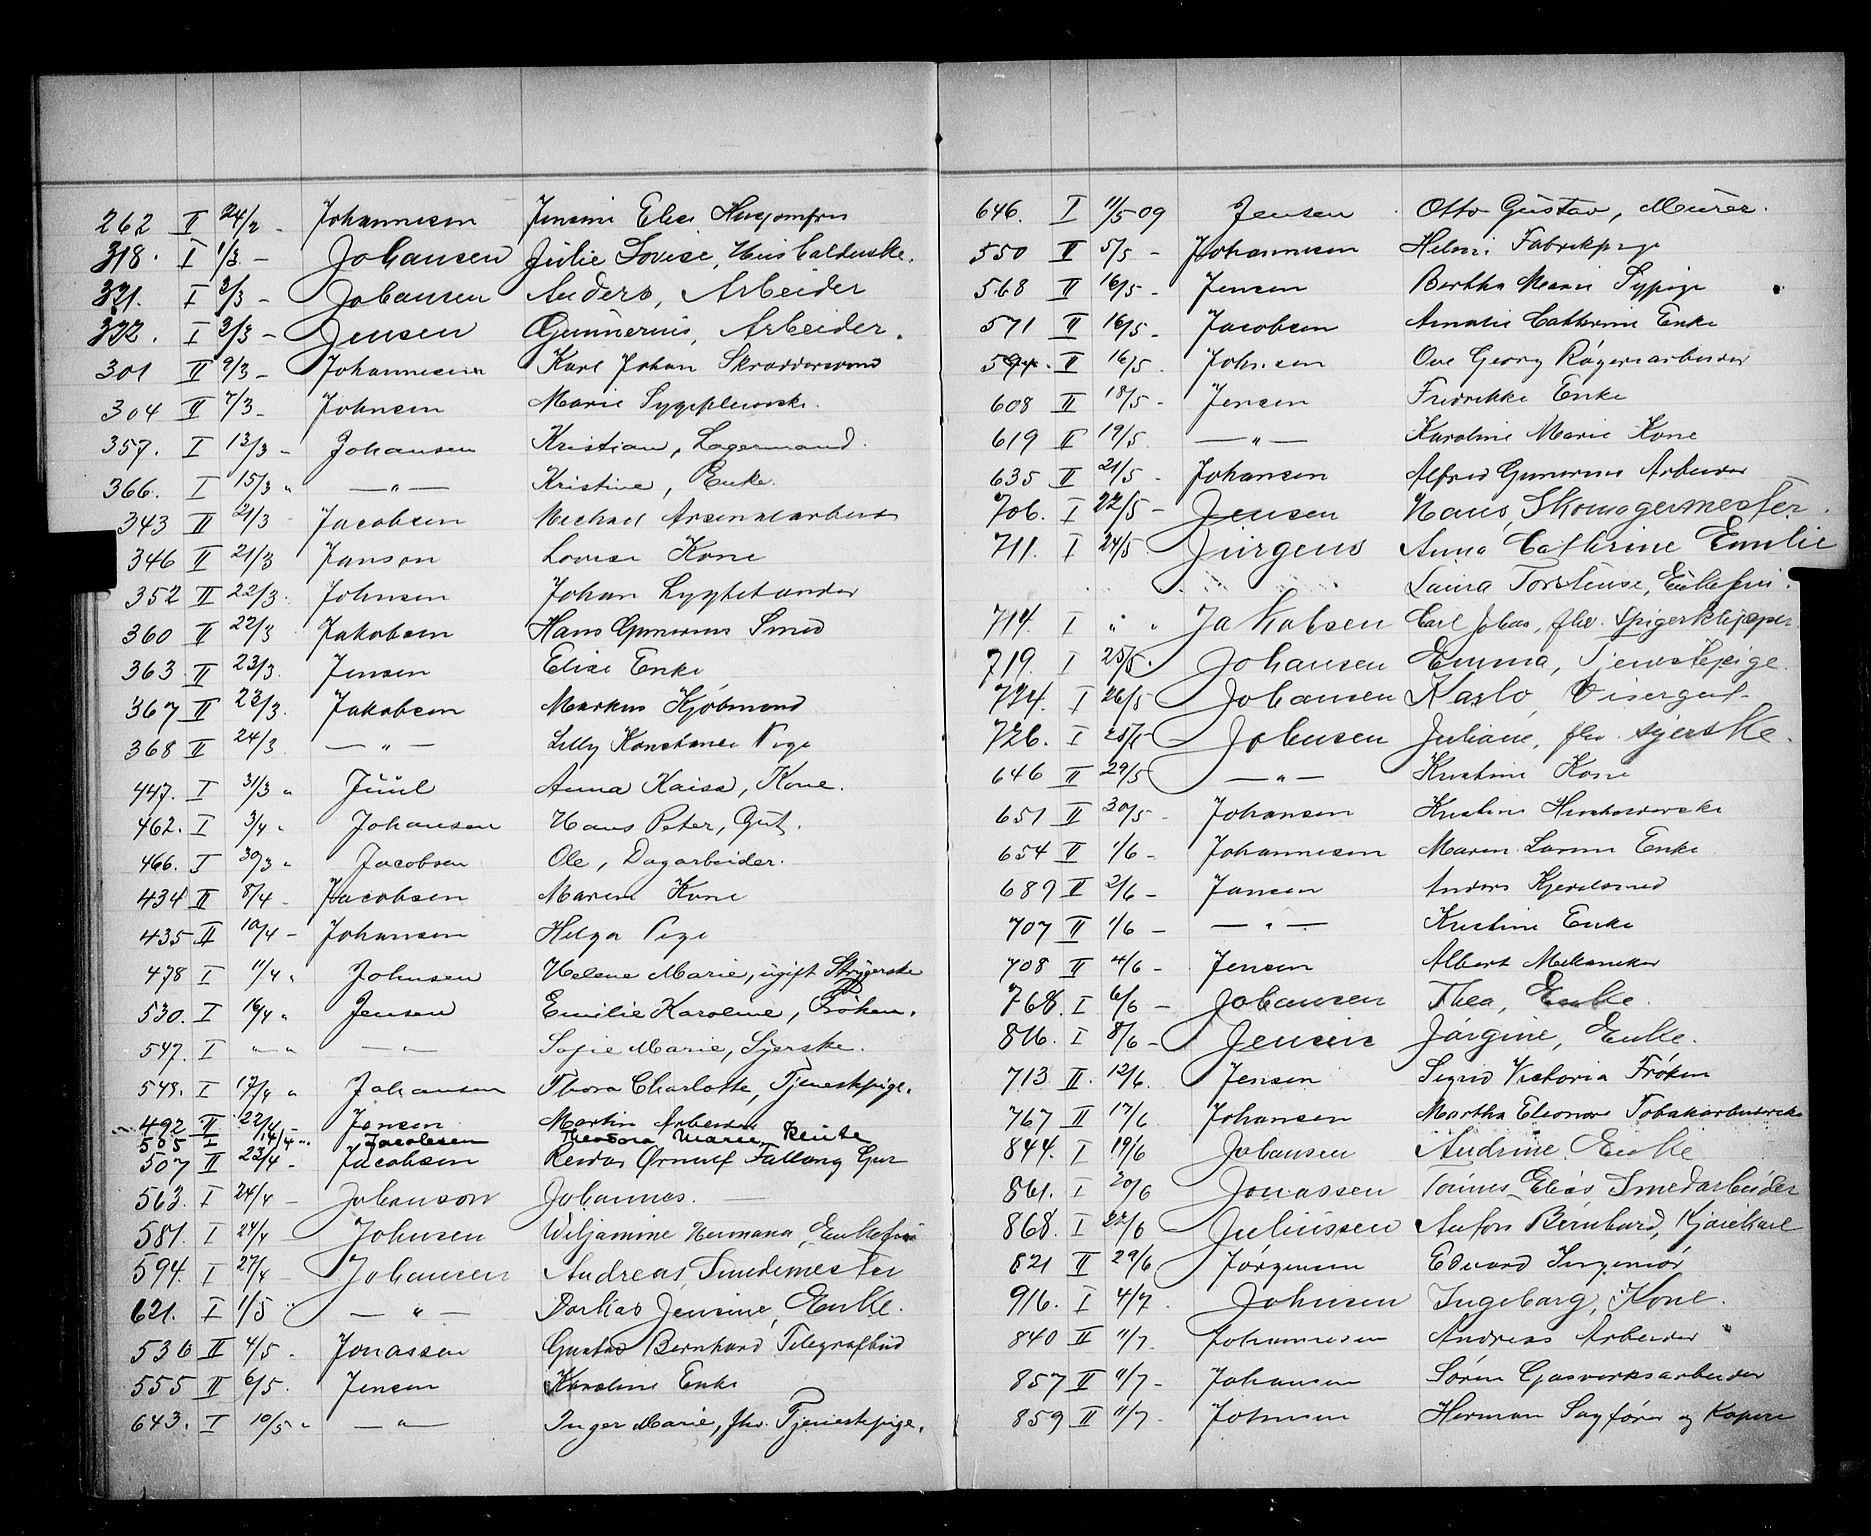 262 II 24/2 - Johannesen Jensine Elise Husjomfru
318. I 1/3 - Johansen Julie Lovise, Husholderske.
321. I 2/3 - Johansen Anders, Arbeider
322. I 3/3 - Jensen Gunnerius, Arbeider.
301 II 9/3 - Johannesen Karl Johan Skræddersvend
304 II 7/3 - Johnsen Marie Sygeplerske.
357. I 13/3 - Johansen Kristian, Lagermand.
366. I 15/3 " — " — Kristine, Enke.
343 II 21/3 - Jacobsen Michael Arsenalarbeid
346 II 21/3 Janson Lovise Kone
352 II 22/3. Johnsen Johan Lygtetender
360 II 22/3. Jakobsen Hans Gunerius Smed
363 II 23/3. Jensen Elise Enke
367 II 23/3. Jakobsen Markus Kjöbmand
368 II 24/3. — " — Lilly Konstanse Pige
447. I 31/3 " Juul Anna Kaisa, Kone.
462. I 3/4 " Johansen Hans Peter, Gut.
466. I 30/3 " Jacobsen Ole, Dagarbeider.
434 II 8/4 - Jacobsen Maren Kone
435 II 10/4 - Johansen Helga Pige
478 I 11/4 " Johnsen Helene Marie, ugift Strygerske
530. I 16/4 " Jensen Emilie Karoline, Fröken.
547. I " " — " — Sofie Marie, Syerske.
548. I 17/4 " Johansen Thora Charlotte, Tjenestepige.
492 II 22/4 - Jensen Martin Arbeider
505 I 14/4 ". Jacobsen Theodora Marie, Enke
507 II 23/4 - Jacobsen Reidar Ørnulf Fallang Gut
563. I 24/4 - Johanson Johannes. —
581. I 24/4 - Johnsen Wiljamine Hermana, Enkefru
594. I 27/4 - Johansen Andreas, Smedemester
621. I 1/5 " — " — Dorkas Jensine, Enke.
536 II 4/5 - Jonassen Gustav Bernhard Telegrafbud
555 II 6/5. Jensen Karoline Enke
643. I 10/5 " — " — Inger Marie, fhv. Tjenestepige.
646. I 11/5 09 Jensen Otto Gustav, Murer.
550 II 5/5 - Johannesen Helmi Fabrikpige
568 II 16/5 - Jensen Bertha Marie Sypige
571 II 16/5 - Jacobsen Amalie Cathrine Enke
594. II 16/5. Johnsen Ove Georg Rögeriarbeider
608 II 18/5 - Jensen Fredrikke Enke
619 II 19/5. — " — Karoline Marie Kone
635 II 21/5 - Johansen Alfred Gunerius Arbeider
706. I 22/5 - Jensen Hans, Skomagermester.
711. I 24/5 Jürgens Anna Cathrine Emilie
Laura Torstense, Enkefru.
714. I " " Jakobsen Carl Johas, fhv. Spigerklipper
719. I 25/5. Johansen Emma, Tjenestepige.
724. I 26/5 Johansen Karlo, Visergut.
726. I 25/5 Johnsen Juliane, fhv. syerske.
646 II 29/5 — " — Kristine Kone
651 II 30/5 - Johansen Kristine Husholderske
654 II 1/6 - Johannesen Maren Enke
689 II 2/6 - Jansen Anders Kjedelsmed
707 II 1/6 - — " — Kristine Enke
708 II 4/6 - Jensen Albert Mekaniker
768. I 6/6 - Johansen Thea, Enke.
816. I 8/6 - Jensen Jörgine, Enke.
713 II. 12/6. Jensen Sigrid Victoria Fröken
767 II 17/6 Johansen Martha Eleonore Tobakarbeiderske
844. I 19/6 Johansen Andrine Enke
861. I 20/6 Jonassen Tönnes Elias Smedarbeider
868. I 22/6 Juliussen Anton Bernhard,
821 II 29/6 Jørgensen Edvard Ingeniør
916. I 4/7. Johnsen Ingeborg, Kone.
840 II 11/7. Johannesen Andreas Arbeider
857 II 11/7 - Johansen Sörin Gasverksarbeider
859 II 11/7 - Johnsen Herman Sagförer og